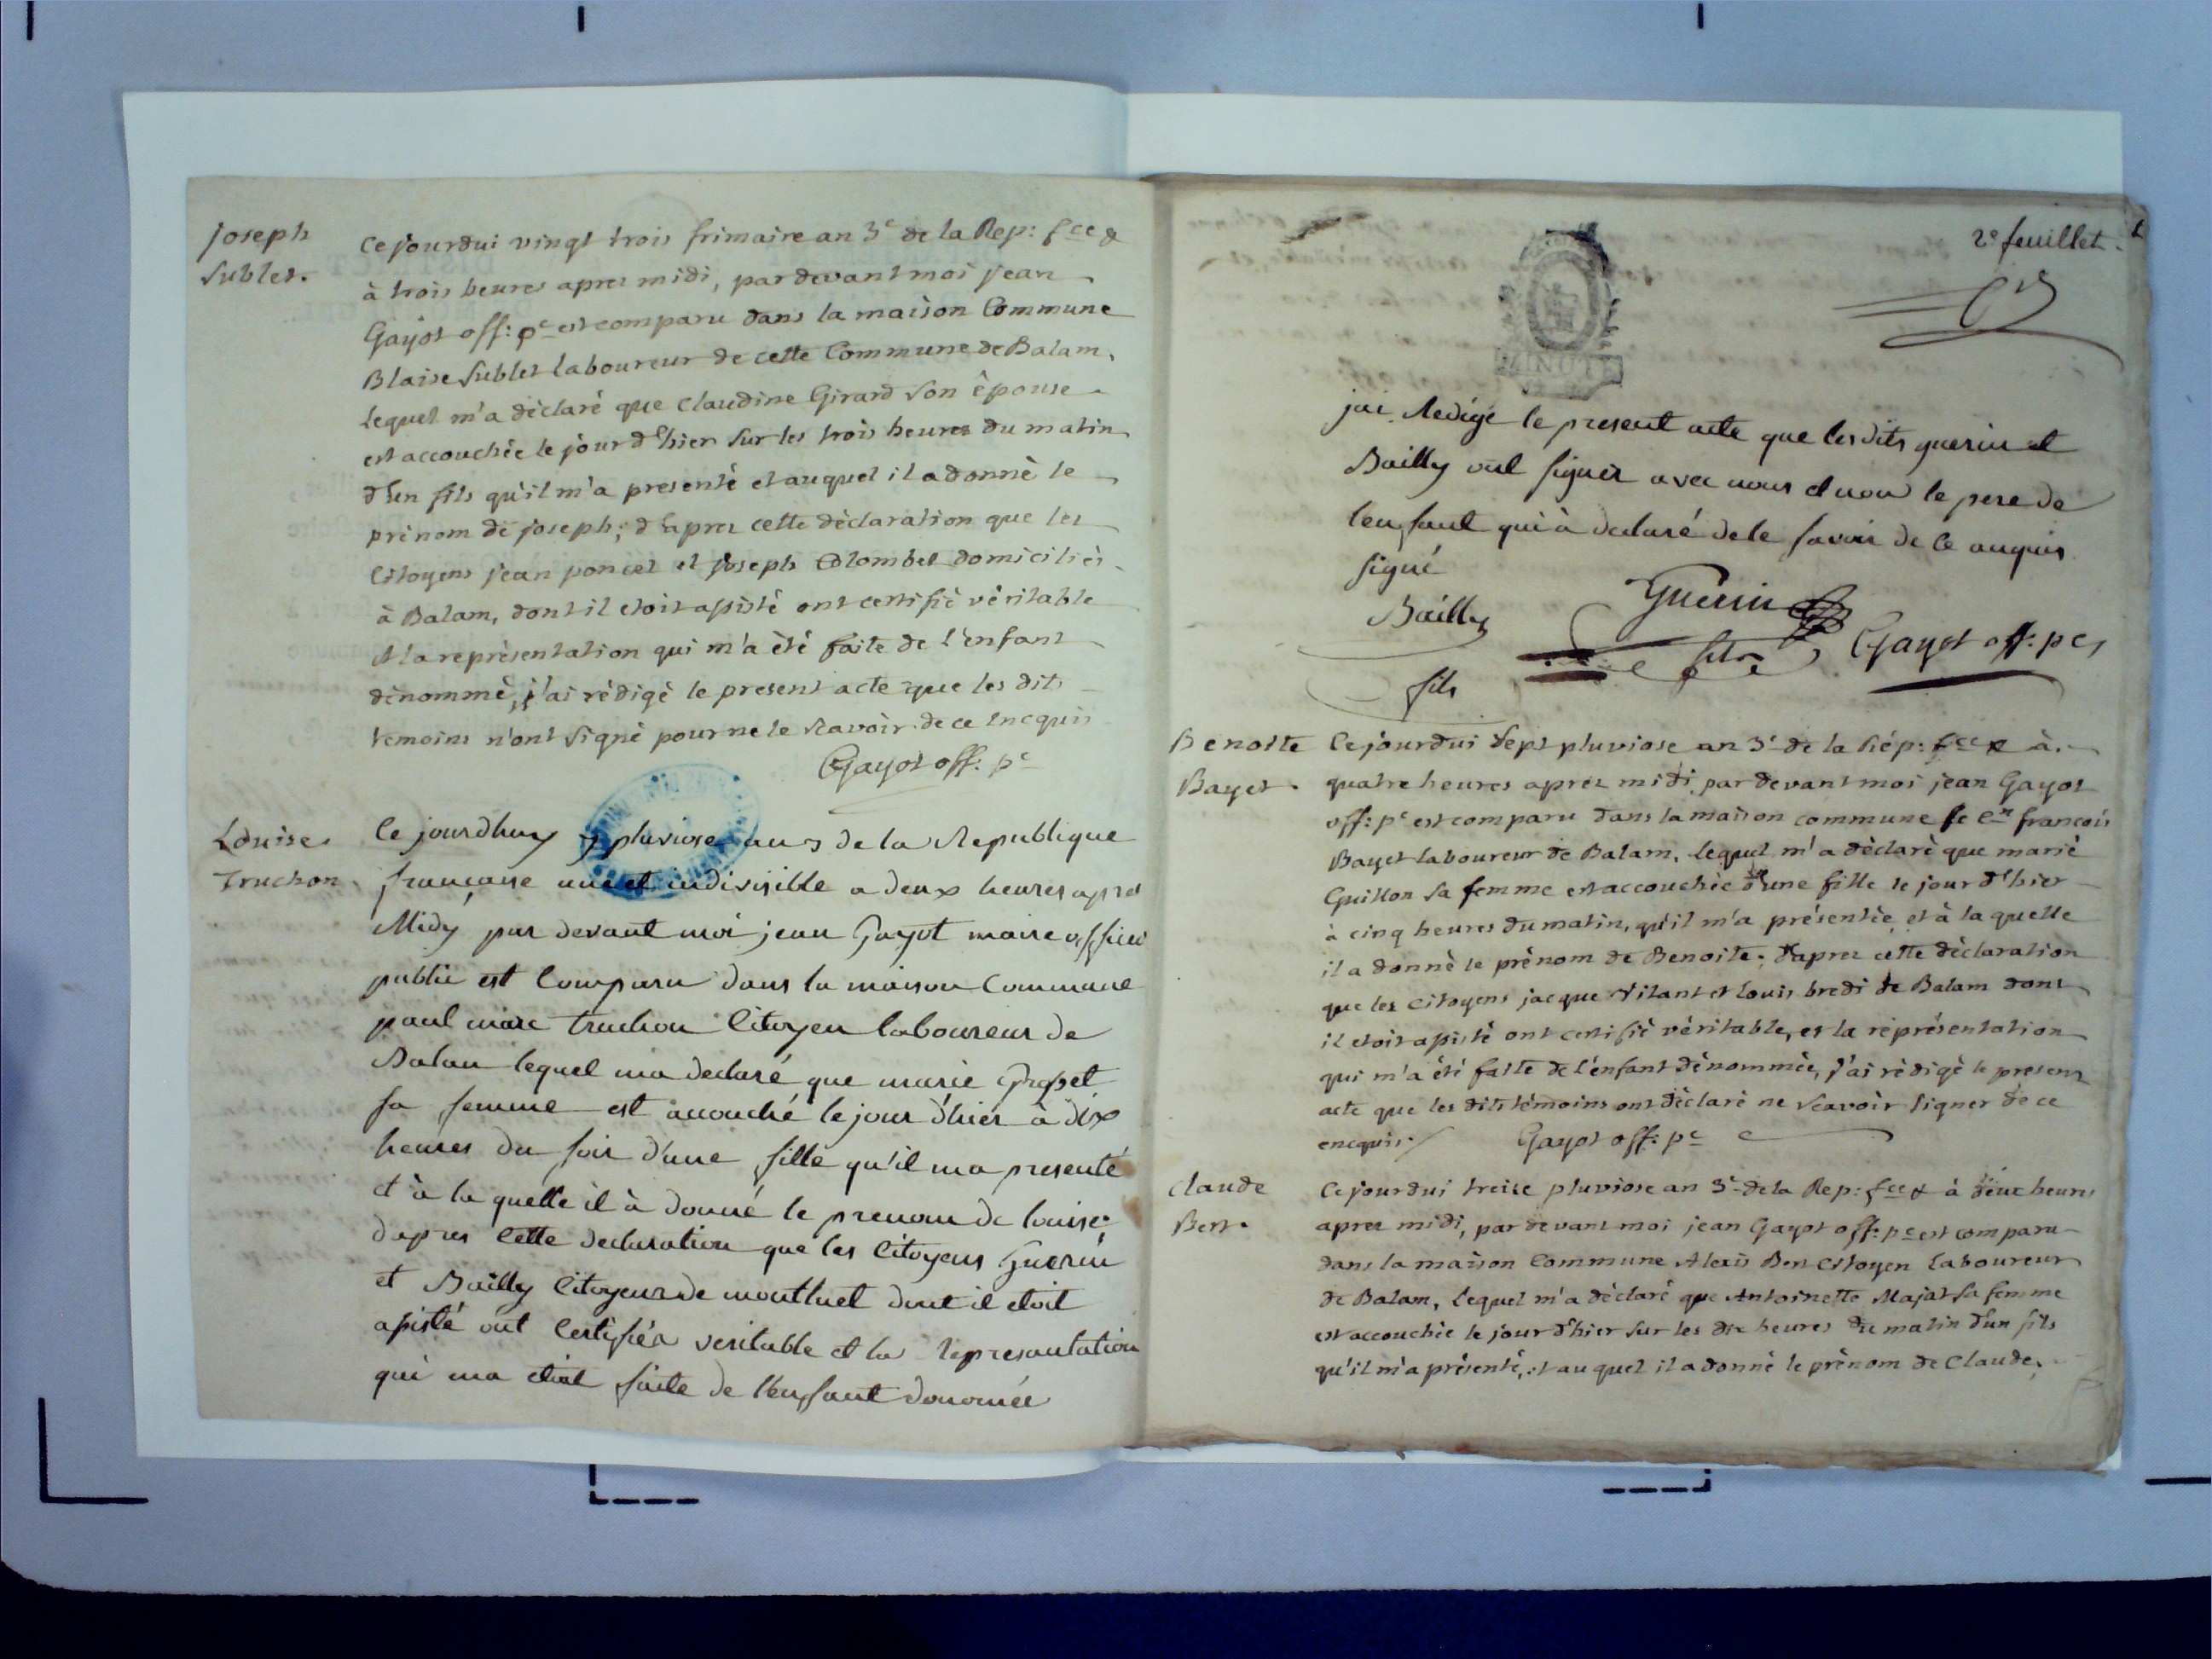 Joseph
Sublet.
Ce jourdui vingt trois frimaire an 3e de la Rep: fce &
à trois heures apres midi, par devant moi Jean
Gayot off: pc est comparu dans la maison Commune
Blaise Sublet laboureur de cette Commune de Balam,
Lequel m'a dèclaré que Claudine Girard Son èpouse
est accouchée le jour d'hier Sur les trois heures du matin
d'un fils qu'il m'a presenté et auquel il a donnè le
prènom de joseph; d'apres cette dèclaration que les
Citoyens jean poncet et joseph Colombet domiciliès
à Balam, dont il etoit assisté ont certifiè vèritable
et la représentation qui m'a èté faite de l'enfant
dènommè, j'ai rèdigè le present acte que les dits
temoins n'ont Signè pour ne le Scavoir de ce Encquis
Gayot off: pc
Louise
Truchon.
Ce jourdhuy 7 pluviose an 3 de la Republique
française une et indivisible a deux heures apres
Midy par devant moi jean Gayot maire officier
public est Comparu dans la maison Commune
paul marc truchon Citoyen laboureur de
Balan lequel ma declaré que marie
sa femme est acouché le jour d'hier à dix
heures du soir d'une fille qu'il ma presenté
et à la quelle il à donné le prenom de louise
dapres Cette declaration que les Citoyens Guerin
et Bailly Citoyens de montluel dont il etoit
assisté ont Certifiéa veritable et la represantation
qui ma etoit faite de l'enfant donomée
2e feuillet.
MINUTE
jai Redigé le present acte que lesdits guerin et
Bailly ont signer avec nous et non le pere de
lenfant qui à declaré de le savoir de Ce anquis
signé
Bailly
fils
Guerin
fils
Gayot off: pc
Benoite
Bayet.
Ce jourdui Sept pluviose an 3e de la Rép: fce & à
quatre heures aprés midi par devant moi jean Gayot
off: pc est comparu dans la maison commune le Cen francois
Bayet laboureur de Balam, lequel m'a dèclaré que marie
Guillon Sa femme est accouchée d'une fille le jour d'hier
à cinq heures du matin, qu'il m'a présentée, et à la quelle
il a donnè le prènom de Benoite; d'apres cette dèclaration
que les citoyens jacque Vilant et louis bredi de Balam dont
il etoit assistè ont certifiè vèritable, et la représentation
qui m'a été faite de l'enfant dènommèe, j'ai rèdigè le present
acte que les dits tèmoins ont dèclarè ne Scavoir Signer de ce
encquis.
Gayot off: pc
Claude
Bert.
Ce jourdui treise pluviose an 3e de la Rep: fce & à deux heures
apres midi, par devant moi jean Gayot off: pc est comparu
dans la maison Commune Alexis Bert Citoyen Laboureur
de Balam, Lequel m'a dèclaré que Antoinette Majat Sa femme
est accouchèe le jour d'hier Sur les dix heures du matin d'un fils
qu'il m'a présenté, et auquel il a donnè le prènom de Claude,